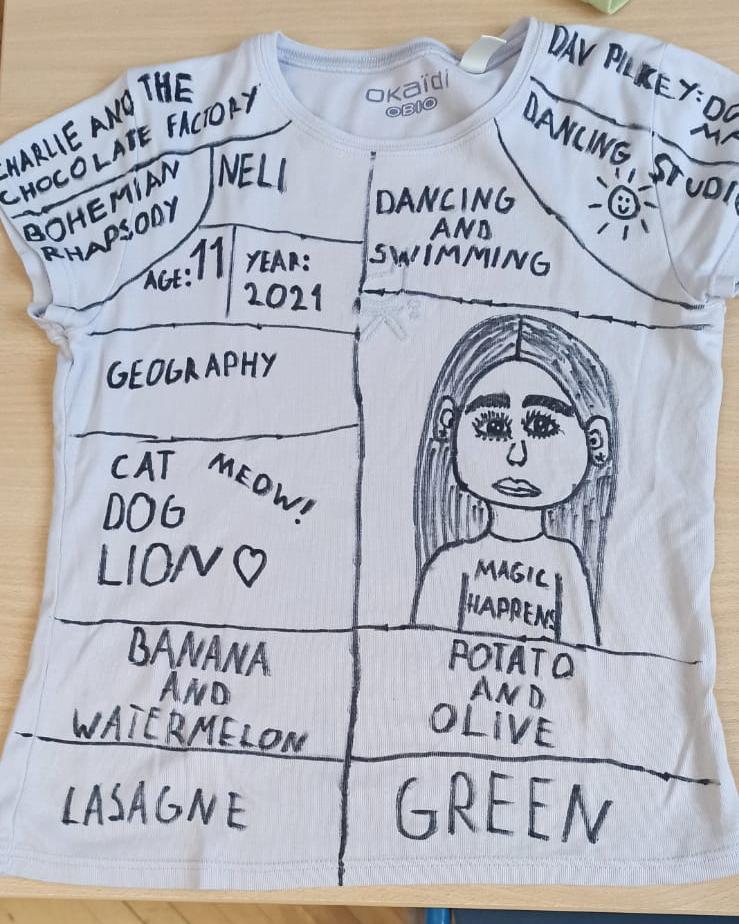 okaïdi
OBIO
CHARLIE AND THE
CHOCOLATE FACTORY
BOHEMIAN
RHAPSODY
NELI
AGE: 11
YEAR:
2021
DAV PILKEY: DO
MA
DANCING STUDIO
DANCING
AND
SWIMMING
GEOGRAPHY
CAT MEOW!
DOG
LION
MAGIC
HAPPENS
BANANA
AND
WATERMELON
POTATO
AND
OLIVE
LASAGNE
GREEN